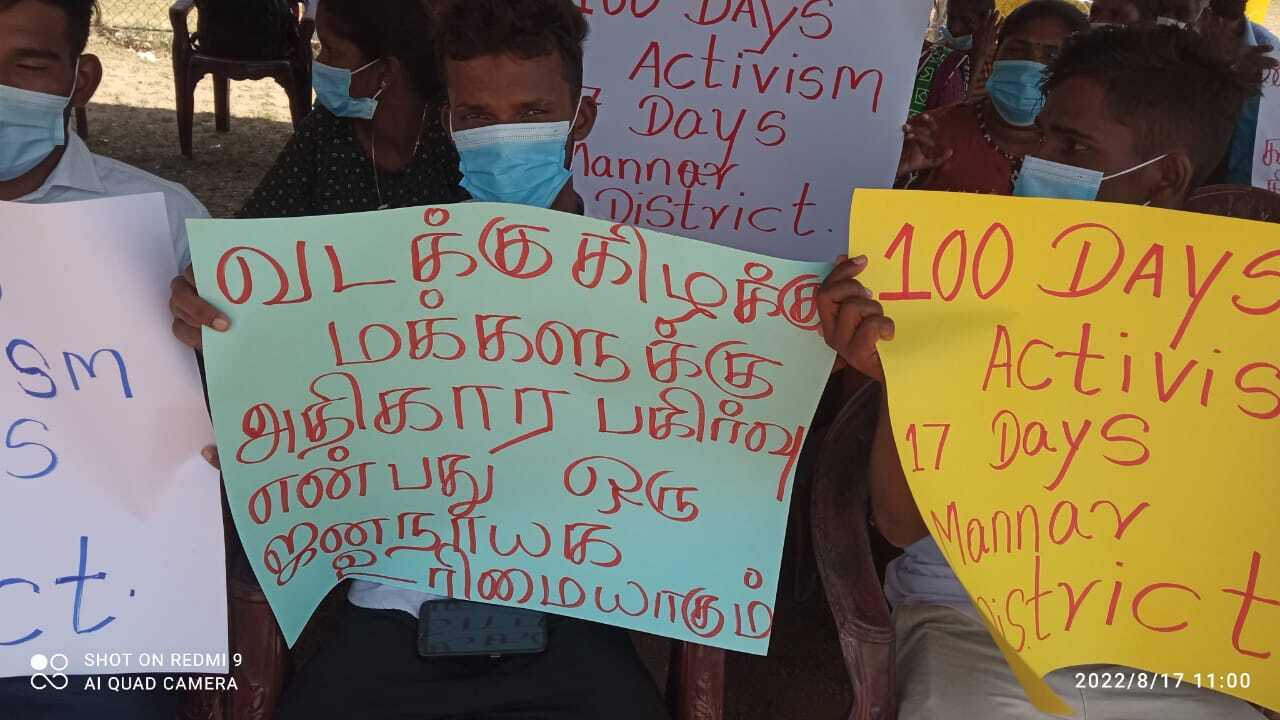 100 DAYS
Activism
Days
Mannar
District.
வடக்கு கிழக்கு
மக்களுக்கு
அதிகார பகிர்வு
என்பது ஒரு
ஜனநாயக
உரிமையாகும்
100 DAYS
Activis
17 Days
Mannar
District
SHOT ON REDMI 9
AI QUAD CAMERA
2022/8/17 11:00